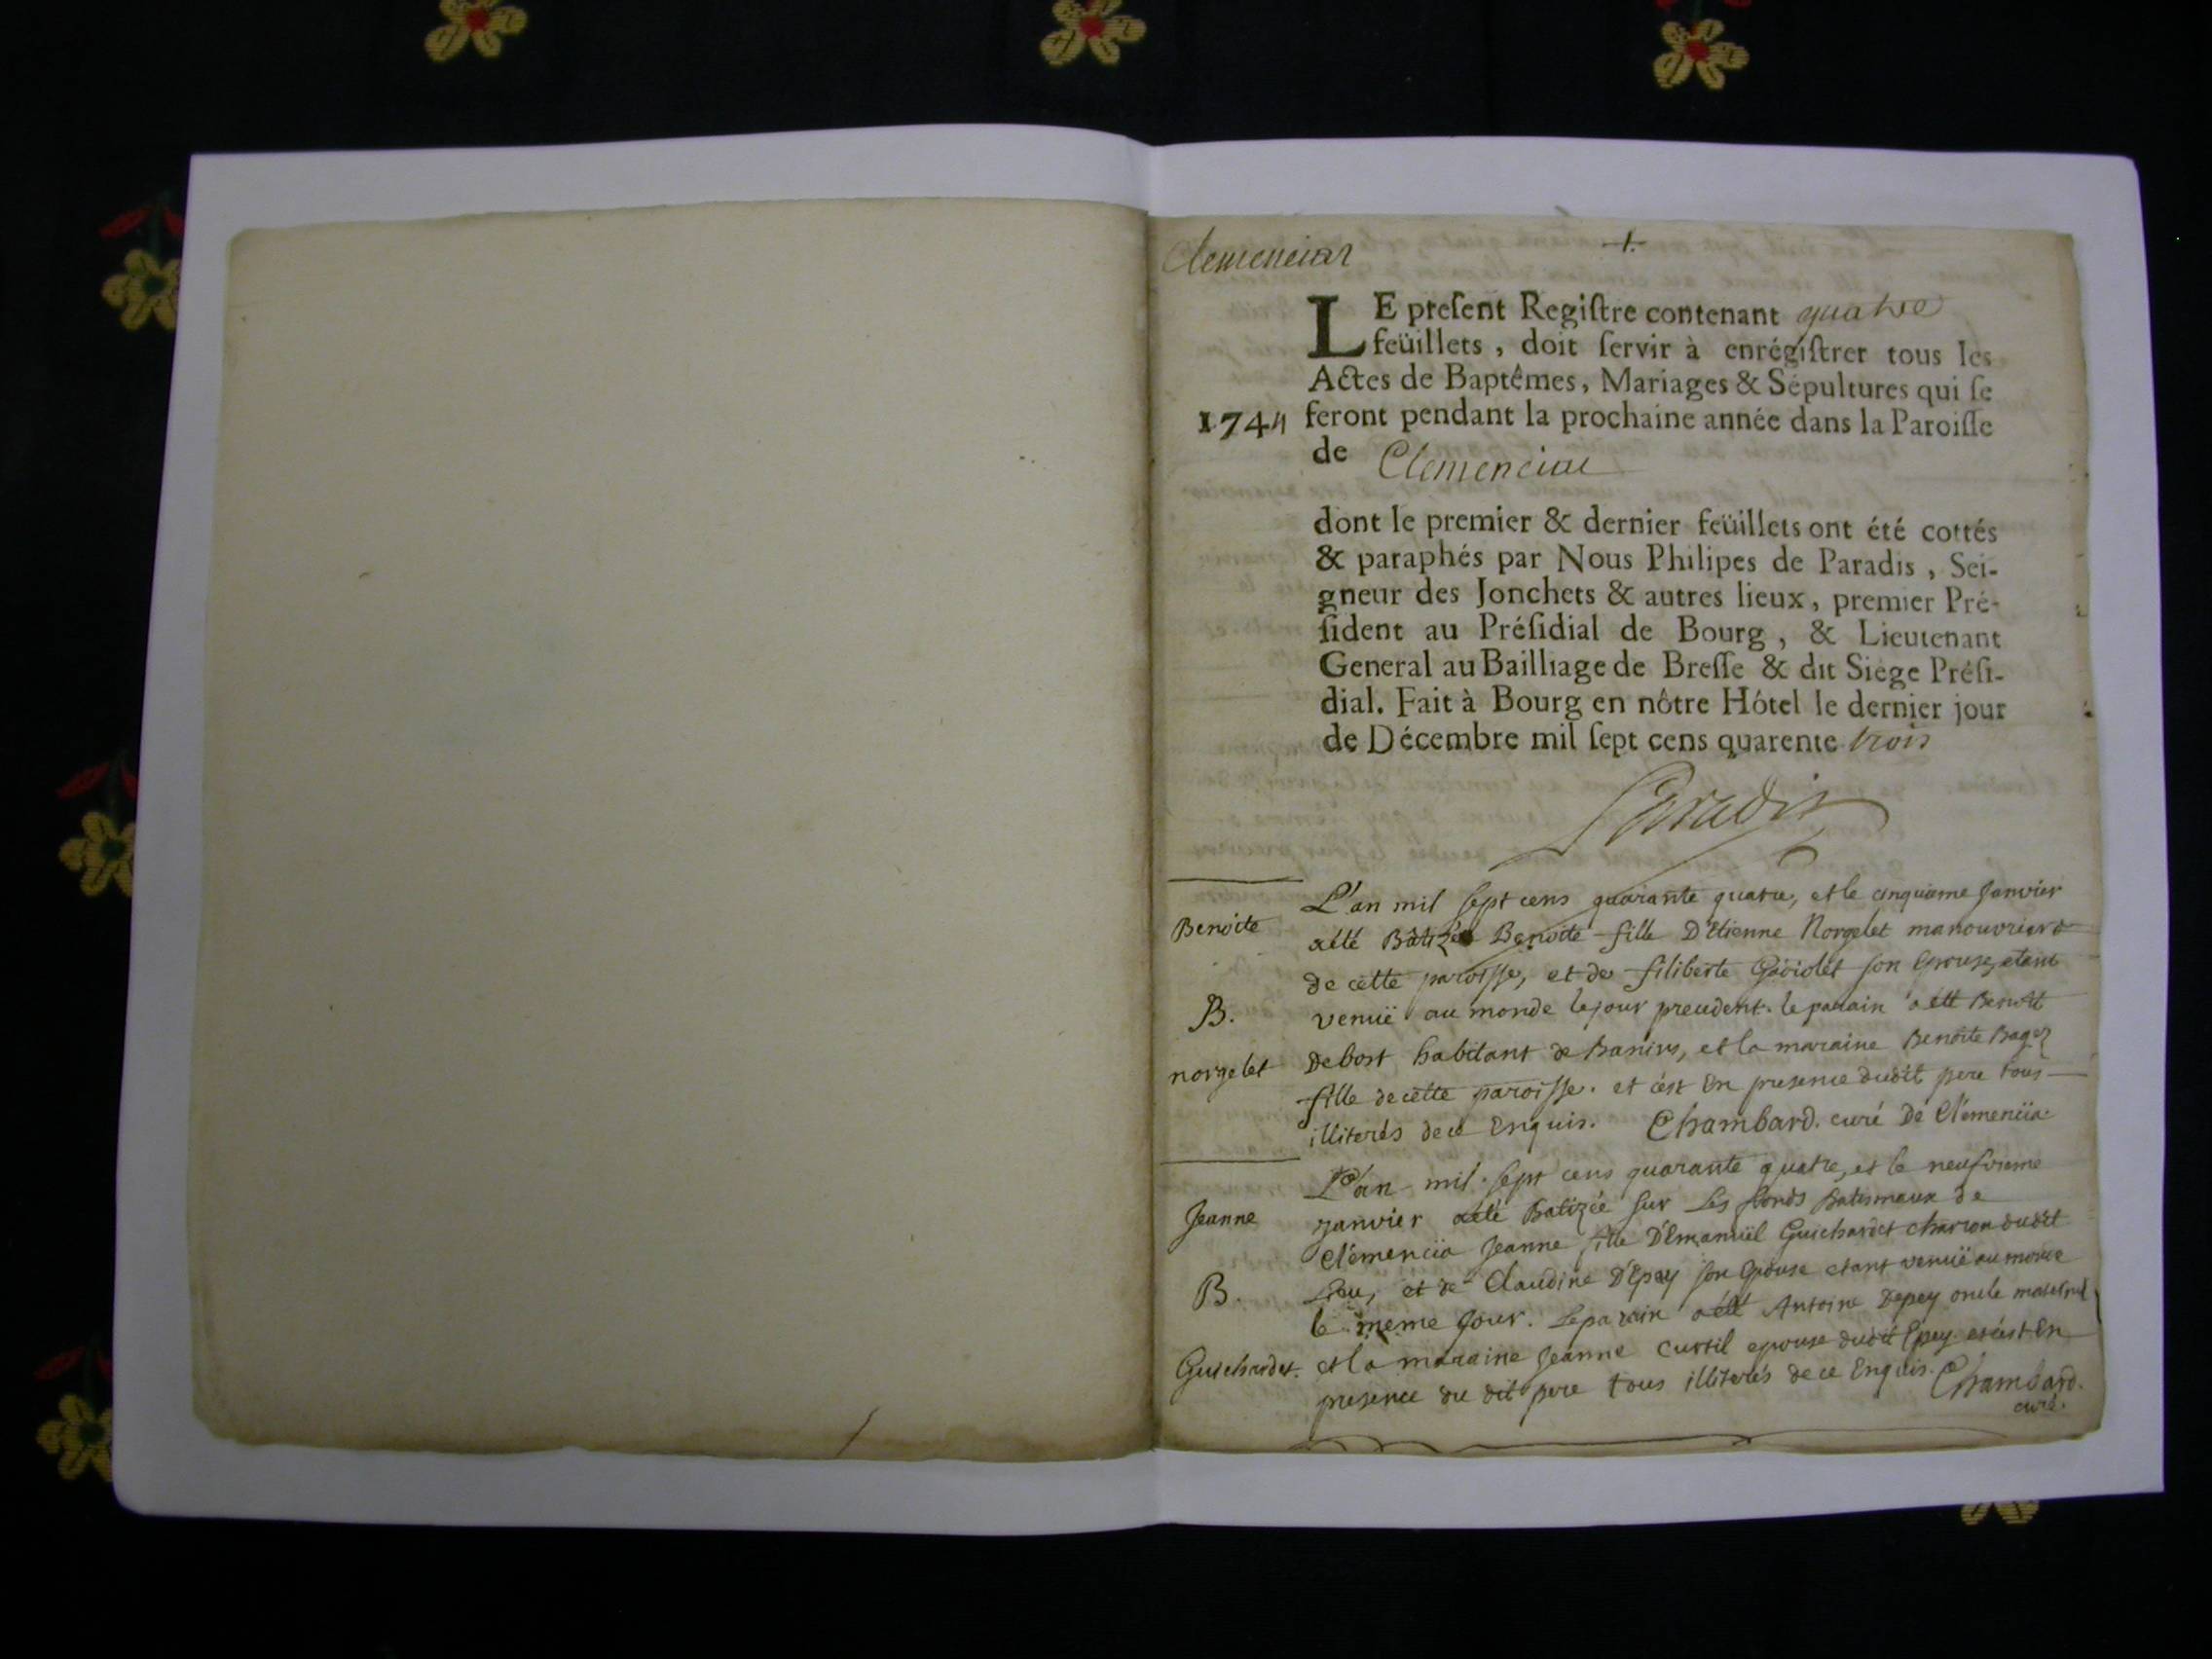 Clemenciat
1.
LE preſent Regiſtre contenant quatre
feüillets, doit ſervir à enrégiſtrer tous les
Actes de Baptêmes, Mariages & Sépultures qui ſe
1744 feront pendant la prochaine année dans la Paroiſſe
de Clemenciat
dont le premier & dernier feüillets ont été cottés
& paraphés par Nous Philipes de Paradis, Sei-
gneur des Jonchets & autres lieux, premier Pré-
ſident au Préſidial de Bourg, & Lieutenant
General au Bailliage de Breſſe & dit Siége Préſi-
dial. Fait à Bourg en nôtre Hôtel le dernier jour
de Décembre mil ſept cens quarente trois
Paradis
Benoite
B.
norgelet
L'an mil sept cens quarante quatre, et le cinquiame Janvier
a été Bâtizée Benoite fille D'Etienne Norgelet manouvrier
de cette paroisse, et de filiberte son Epouse, etant
venuë au monde le jour precedent. le parain a été Benoit
Debost habitant de et la maraine Benoite
fille de cette paroisse. et c'est En presence dudit pere tous
illiterés de ce Enquis. Chambard. curé De Clémencia
Jeanne
B.
Guichardet.
L'an mil sept cens quarante quatre, et le neufvieme
Janvier a été Batizée sur Les fonds Batismaux de
Clémencia Jeanne fille D'Emanuël Guichardet charon dudit
Lieu, et de Claudine D'Epey son Epouse etant venuë au monde
le meme Jour. Le parain a été Antoine Depey oncle maternel
et la maraine Jeanne Curtil epouse dudit Epey. et c'est En
presence du dit pere tous illiterés de ce Enquis. Chambard.
curé.